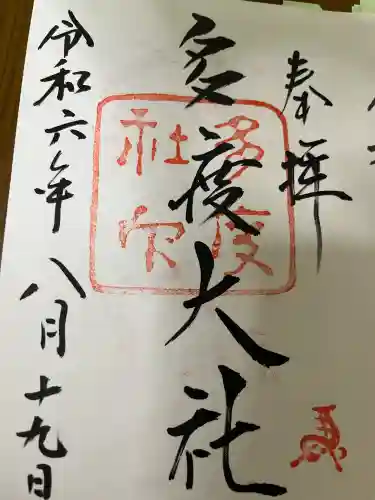 奉拝
多度大社
多度
社
令和六年八月十九日